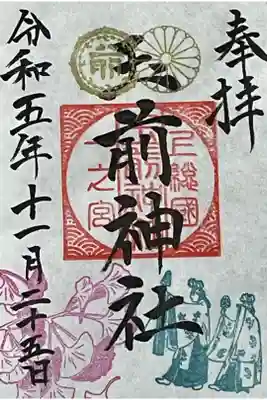 奉拝
玉前神社
上総國
一之宮
前
令和五年十一月二十五日